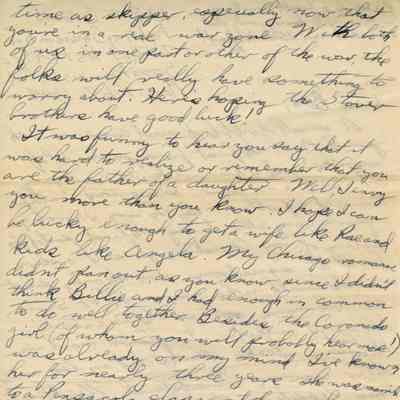 time as skipper, especially now that
you're in a real war zone. With both
of us in one part or other of the war, the
folks will really have something to
worry about. Here's hoping the Stover
brothers have good luck!
It was funny to hear you say that it
was hard to realize or remember that you
are the father of a daughter. Well I envy
you more than you know. I hope I can
be lucky enough to get a wife like Rae and
kids like Angela. My Chicago romance
didn't pan out, as you know, since I didn't
think Billie and I had enough in common
to do well together. Besides, the Coronado
girl (of whom you will probably hear more!)
was already on my mind. I've known
her for nearly three years. She was
to a